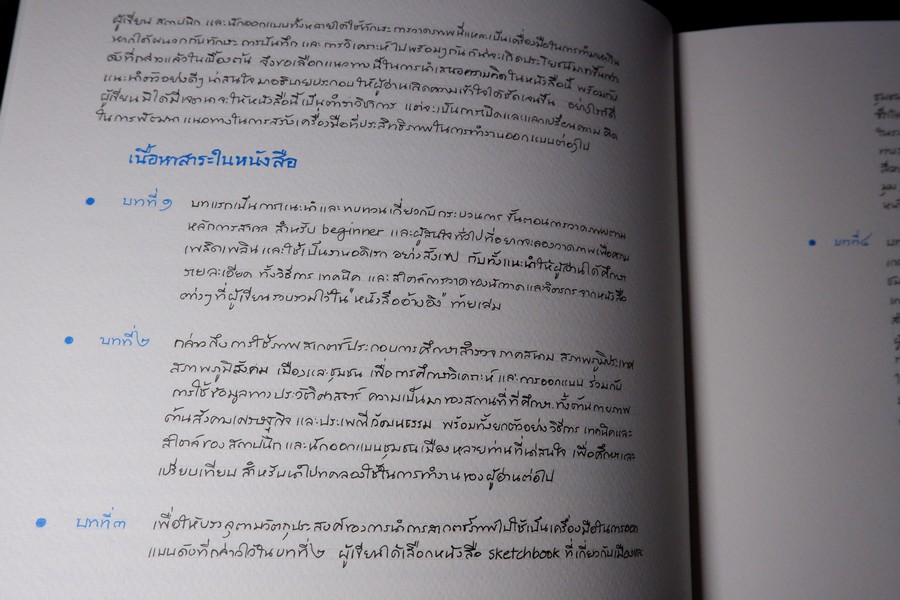 ผู้เขียน สถาปนิก และนักออกแบบทั้งหลายได้ใช้ทักษะการวาดภาพนี้และเป็นเครื่องมือในการทำมาหากิน
หากได้ผนวกกับทักษะ การบันทึก และการวิเคราะห์ไปพร้อมๆกัน ก็น่าจะเกิดประโยชน์มากขึ้นกว่า
ดังที่กล่าวแล้วในเบื้องต้น จึงขอเลือกแนวทางนี้ในการนำเสนอความคิดในหนังสือนี้ พร้อมกับ
แนะนำตัวอย่างดีๆ น่าสนใจ มาอธิบายประกอบให้ผู้อ่านเกิดความเข้าใจได้ชัดเจนขึ้น อย่างไรก็ดี
ผู้เขียนมิได้มีเจตนาจะให้หนังสือนี้เป็นตำราวิชาการ แต่จะเป็นการเปิดและแลกเปลี่ยนความคิด
ในการพัฒนาแนวทางในการสร้างเครื่องมือที่ประสิทธิภาพในการทำงานออกแบบต่อๆไป
เนื้อหาสาระในหนังสือ
บทที่ ๑ บทแรกเป็นการแนะนำและทบทวนเกี่ยวกับกระบวนการ ขั้นตอนการวาดภาพตาม
หลักการสากล สำหรับ beginner และผู้สนใจทั่วไปที่อยากจะลองวาดภาพเพื่อความ
เพลิดเพลิน และใช้เป็นงานอดิเรก อย่างสังเขป กับทั้งแนะนำให้ผู้อ่านได้ศึกษา
รายละเอียด ทั้งวิธีการ เทคนิค และสไตล์การวาดของนักวาดและจิตรกรจากหนังสือ
ต่างๆที่ผู้เขียนรวบรวมไว้ใน "หนังสืออ้างอิง" ท้ายเล่ม
บทที่ ๒ กล่าวถึงการใช้ภาพสเกตช์ประกอบการศึกษาสำรวจ ภาคสนาม สภาพภูมิประเทศ
สภาพภูมิสังคม เมืองและชุมชน เพื่อการศึกษาวิเคราะห์ และการออกแบบ ร่วมกับ
การใช้ข้อมูลทางประวัติศาสตร์ ความเป็นมาของสถานที่ที่ศึกษา ทั้งด้านกายภาพ
ด้านสังคมเศรษฐกิจ และประเพณีวัฒนธรรม พร้อมทั้งยกตัวอย่างวิธีการ เทคนิคและ
สไตล์ของสถาปนิก และนักออกแบบชุมชนเมืองหลายท่านที่น่าสนใจ เพื่อศึกษาและ
เปรียบเทียบ สำหรับนำไปทดลองใช้ในการทำงานของผู้อ่านต่อไป
บทที่ ๓ เพื่อให้บรรลุตามวัตถุประสงค์ของการนำการสเกตช์ภาพไปใช้เป็นเครื่องมือในการออก
แบบดังที่กล่าวไว้ในบทที่ ๒ ผู้เขียนได้เลือกหนังสือ sketchbook ที่เกี่ยวกับเมืองและ
บทที่ ๔